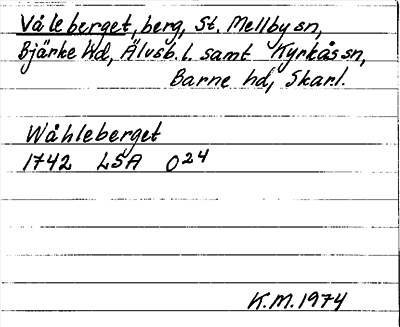 Våleberget, berg, St. Mellby sn,
Bjärke hd, Älvsb. l. samt Kyrkås sn,
Barne hd, Skarl.
Wåhleberget
1742 LSA O24
K.M. 1974